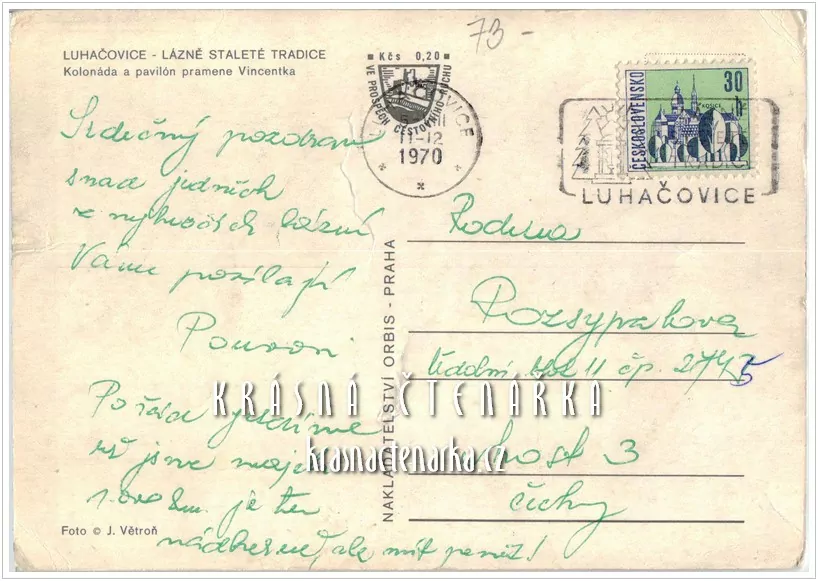 73-
LUHAČOVICE - LÁZNĚ STALETÉ TRADICE
Kolonáda a pavilón pramene Vincentka
Kčs 0,20
VE PROSPĚCH CESTOVNÍHO RUCHU
11-12
1970
ČESKOSLOVENSKO
30 h
KOŠICE
LUHAČOVICE
Srdečný pozdrav
snad jedněch
z nejhezčích lázní
Vám posílají
Rodina
Rozsypalova
Údolní 11 čp. 2745
Most 3
Čechy
Pořád jezdíme
už jsme
1.000 km. je ten
nádherně, ale mít peníz!
NAKLADATELSTVÍ ORBIS - PRAHA
KRÁSNÁ ČTENÁŘKA
krasnactenarka.cz
Foto © J. Větroň